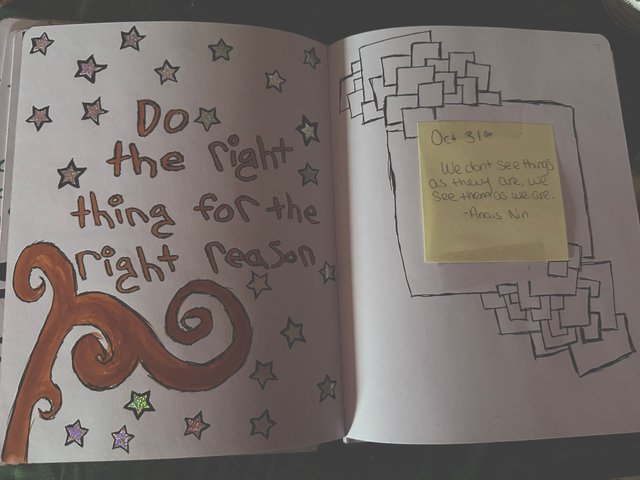 Do
the right
thing for the
right reason
Oct 31st
We dont see things
as they are, we
see them as we are.
-Anais Nin